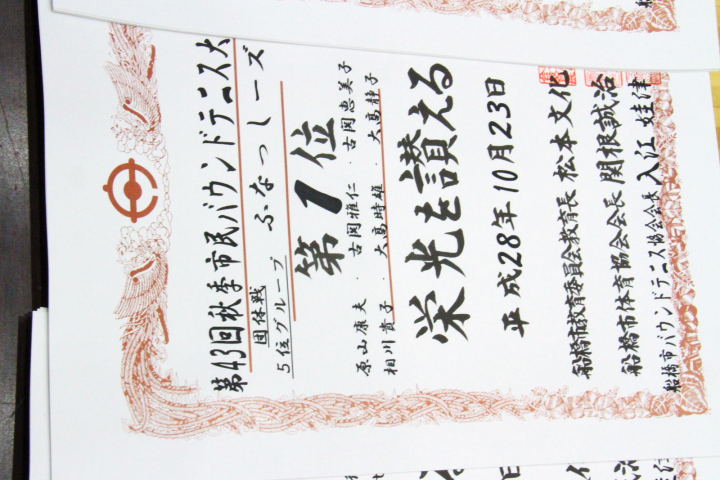 第43回秋季市民バウンドテニス大
団体戦
5位グループ ふなっしーズ
第1位
原山康夫 ・ 古岡雅仁 ・ 古岡恵美子
相川貴子 ・ 大髙時雄 ・ 大髙静子
栄光を讃える
平成28年10月23日
船橋市教育委員会教育長 松本文化
船橋市体育協会会長 関根誠治
船橋市バウンドテニス協会会長 入江 娃津